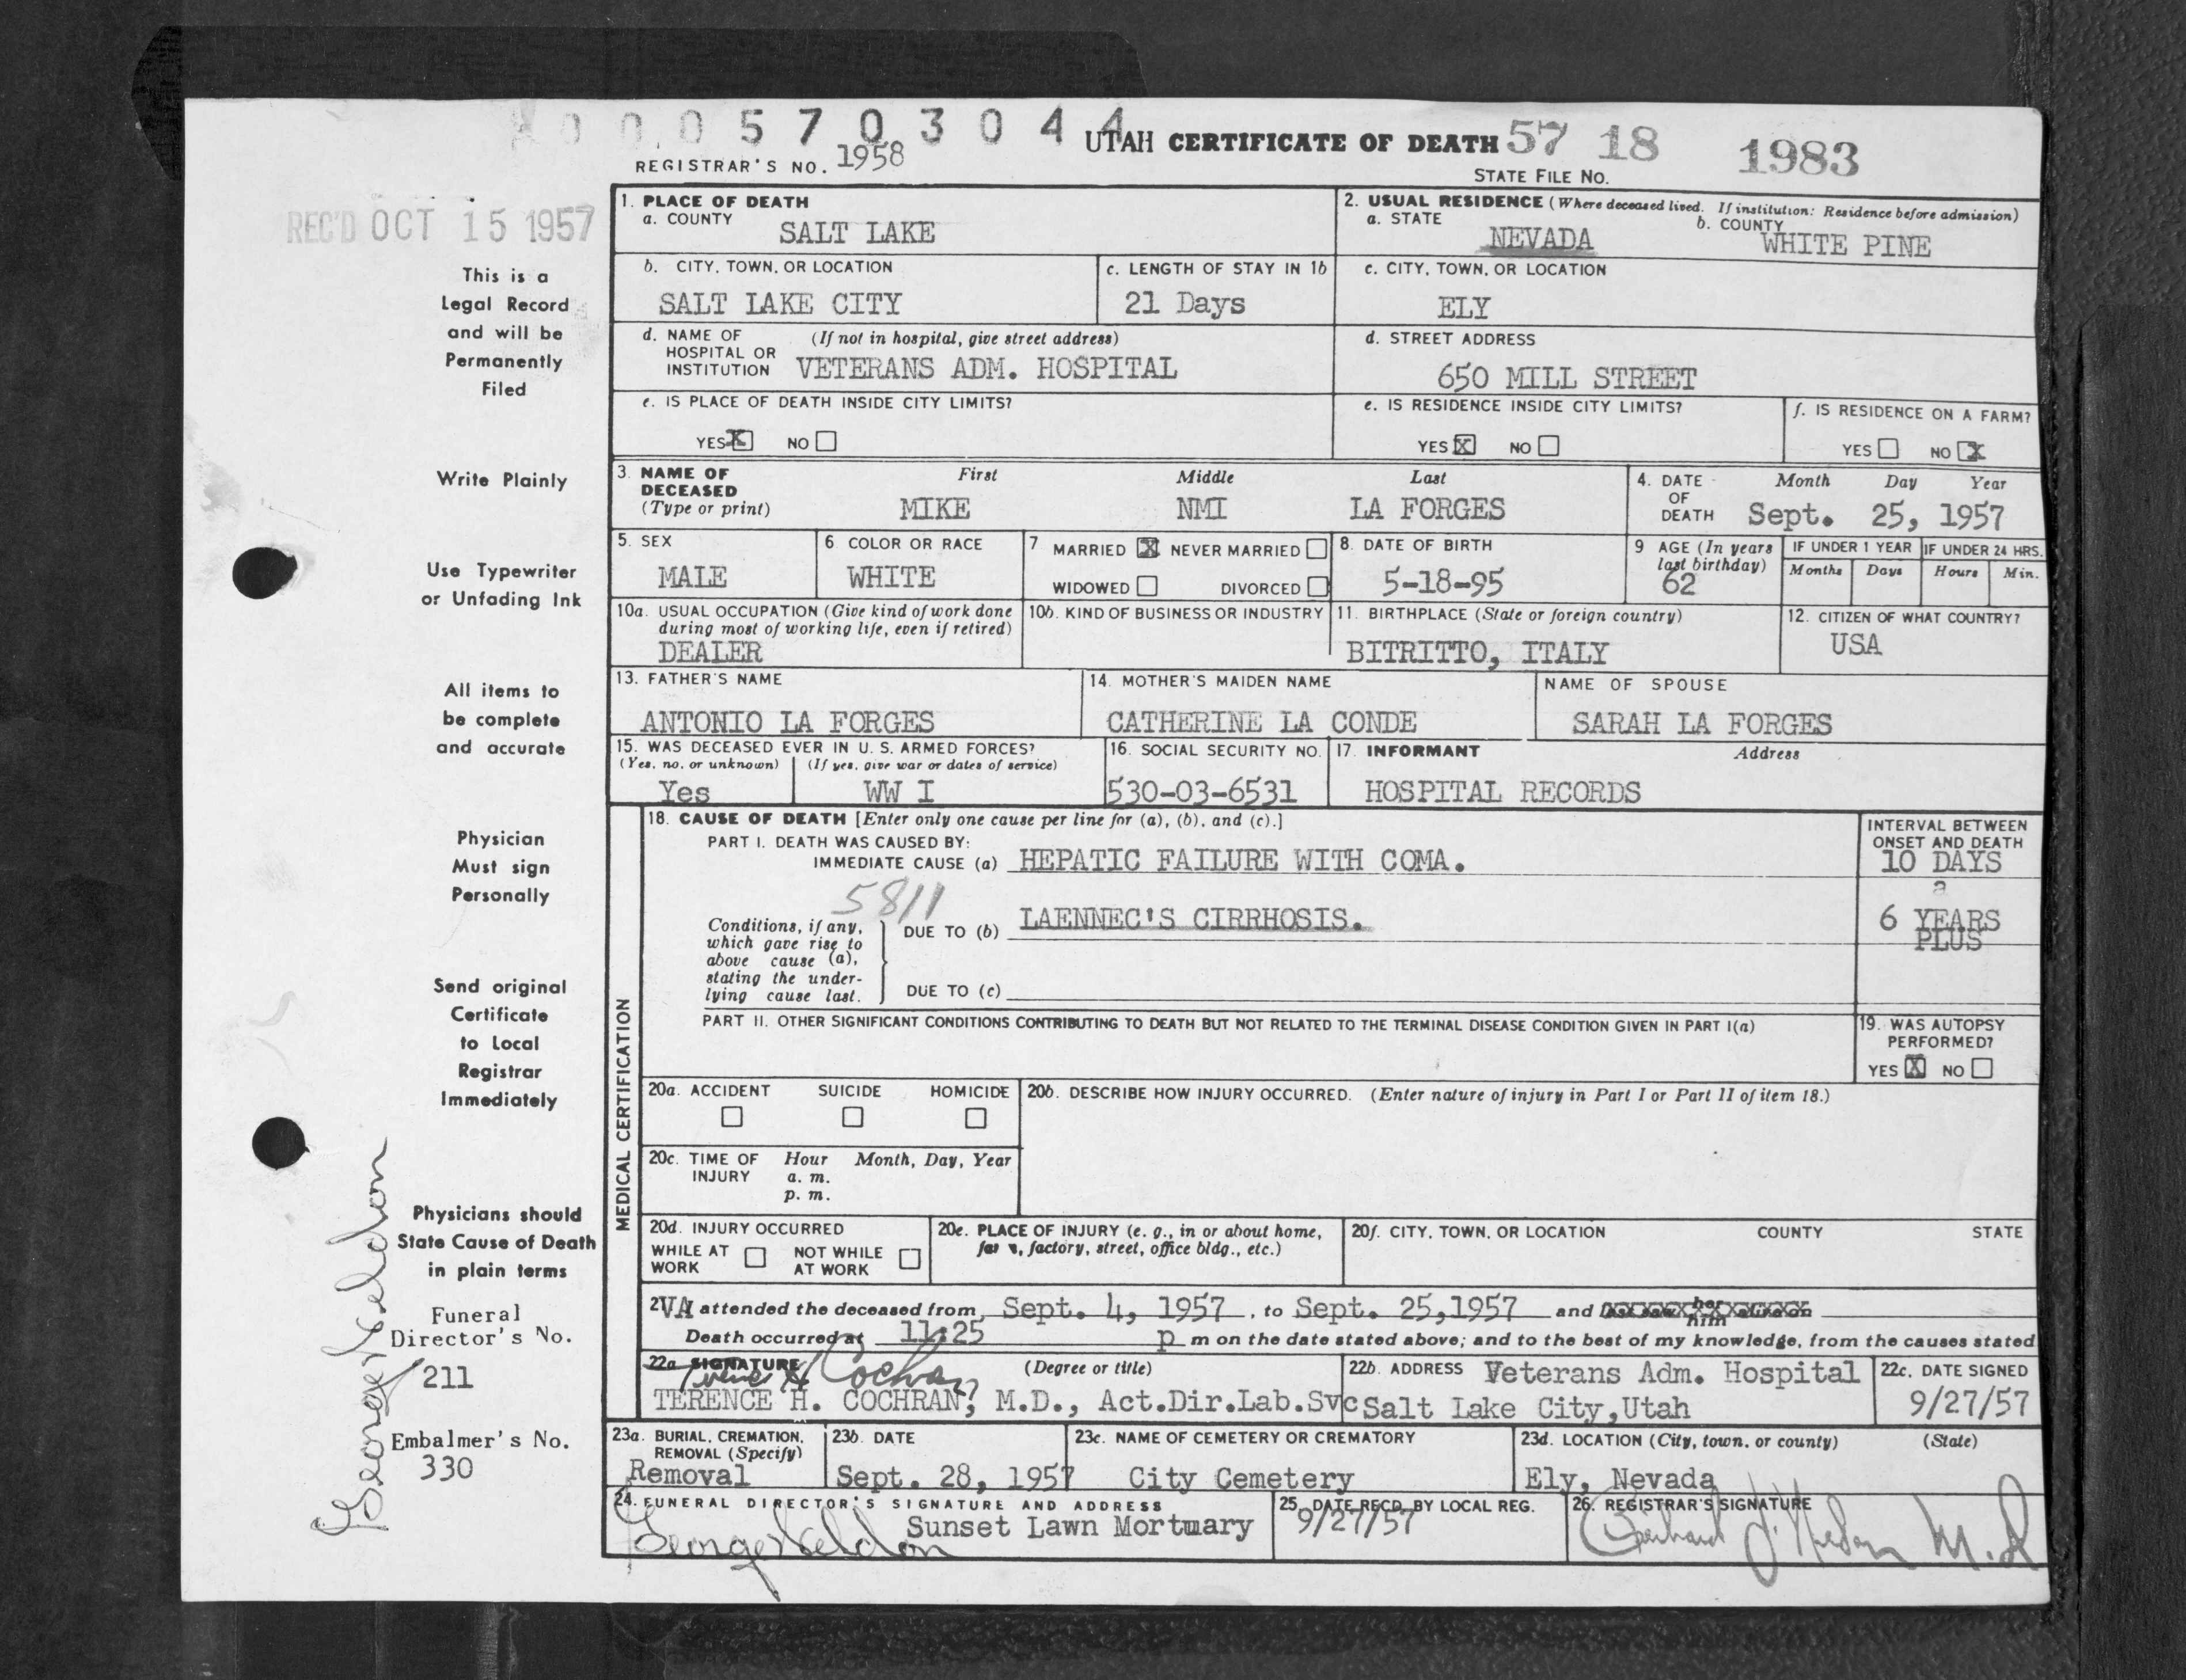 0 0 0 5 7 0 3 0 4 4
UTAH CERTIFICATE OF DEATH 57 18 1983
REGISTRAR'S NO. 1958
STATE FILE NO.
REC'D OCT 15 1957
This is a
Legal Record
and will be
Permanently
Filed
Write Plainly
Use Typewriter
or Unfading Ink
All items to
be complete
and accurate
Physician
Must sign
Personally
Send original
Certificate
to Local
Registrar
Immediately
Physicians should
State Cause of Death
in plain terms
Funeral
Director's No.
211
Embalmer's No.
330
1. PLACE OF DEATH
a. COUNTY
SALT LAKE
2. USUAL RESIDENCE (Where deceased lived. If institution: Residence before admission)
a. STATE
NEVADA
b. COUNTY
WHITE PINE
b. CITY, TOWN, OR LOCATION
SALT LAKE CITY
c. LENGTH OF STAY IN 1b
21 Days
c. CITY, TOWN, OR LOCATION
ELY
d. NAME OF HOSPITAL OR INSTITUTION
(If not in hospital, give street address)
VETERANS ADM. HOSPITAL
d. STREET ADDRESS
650 MILL STREET
e. IS PLACE OF DEATH INSIDE CITY LIMITS?
YES X NO
e. IS RESIDENCE INSIDE CITY LIMITS?
YES X NO
f. IS RESIDENCE ON A FARM?
YES NO X
3. NAME OF DECEASED (Type or print)
First Middle Last
MIKE NMI LA FORGES
4. DATE OF DEATH
Month Day Year
Sept. 25, 1957
5. SEX
MALE
6 COLOR OR RACE
WHITE
7 MARRIED X NEVER MARRIED
WIDOWED DIVORCED
8. DATE OF BIRTH
5-18-95
9 AGE (In years last birthday)
62
IF UNDER 1 YEAR
Months Days
IF UNDER 24 HRS.
Hours Min.
10a. USUAL OCCUPATION (Give kind of work done during most of working life, even if retired)
DEALER
10b. KIND OF BUSINESS OR INDUSTRY
11. BIRTHPLACE (State or foreign country)
BITRITTO, ITALY
12. CITIZEN OF WHAT COUNTRY?
USA
13. FATHER'S NAME
ANTONIO LA FORGES
14. MOTHER'S MAIDEN NAME
CATHERINE LA CONDE
NAME OF SPOUSE
SARAH LA FORGES
15. WAS DECEASED EVER IN U. S. ARMED FORCES?
(Yes, no, or unknown) (If yes, give war or dates of service)
Yes WW I
16. SOCIAL SECURITY NO.
530-03-6531
17. INFORMANT Address
HOSPITAL RECORDS
MEDICAL CERTIFICATION
18. CAUSE OF DEATH [Enter only one cause per line for (a), (b), and (c).]
INTERVAL BETWEEN
ONSET AND DEATH
PART I. DEATH WAS CAUSED BY:
IMMEDIATE CAUSE (a) HEPATIC FAILURE WITH COMA.
10 DAYS
5811
Conditions, if any, which gave rise to above cause (a), stating the underlying cause last.
DUE TO (b) LAENNEC'S CIRRHOSIS.
6 YEARS
PLUS
DUE TO (c)
PART II. OTHER SIGNIFICANT CONDITIONS CONTRIBUTING TO DEATH BUT NOT RELATED TO THE TERMINAL DISEASE CONDITION GIVEN IN PART I(a)
19. WAS AUTOPSY
PERFORMED?
YES X NO
20a. ACCIDENT SUICIDE HOMICIDE
20b. DESCRIBE HOW INJURY OCCURRED. (Enter nature of injury in Part I or Part II of item 18.)
20c. TIME OF INJURY
Hour Month, Day, Year
a. m.
p. m.
20d. INJURY OCCURRED
WHILE AT WORK NOT WHILE AT WORK
20e. PLACE OF INJURY (e. g., in or about home, farm, factory, street, office bldg., etc.)
20f. CITY, TOWN, OR LOCATION COUNTY STATE
2VA attended the deceased from Sept. 4, 1957, to Sept. 25,1957 and her him
Death occurred at 11:25 p m on the date stated above; and to the best of my knowledge, from the causes stated
22a SIGNATURE (Degree or title)
Terence H Cochran
TERENCE H. COCHRAN, M.D., Act.Dir.Lab.Svc
22b. ADDRESS Veterans Adm. Hospital
Salt Lake City,Utah
22c. DATE SIGNED
9/27/57
23a. BURIAL, CREMATION, REMOVAL (Specify)
Removal
23b. DATE
Sept. 28, 1957
23c. NAME OF CEMETERY OR CREMATORY
City Cemetery
23d. LOCATION (City, town, or county) (State)
Ely, Nevada
24. FUNERAL DIRECTOR'S SIGNATURE AND ADDRESS
Sunset Lawn Mortuary
25. DATE RECD. BY LOCAL REG.
9/27/57
26. REGISTRAR'S SIGNATURE
M.D